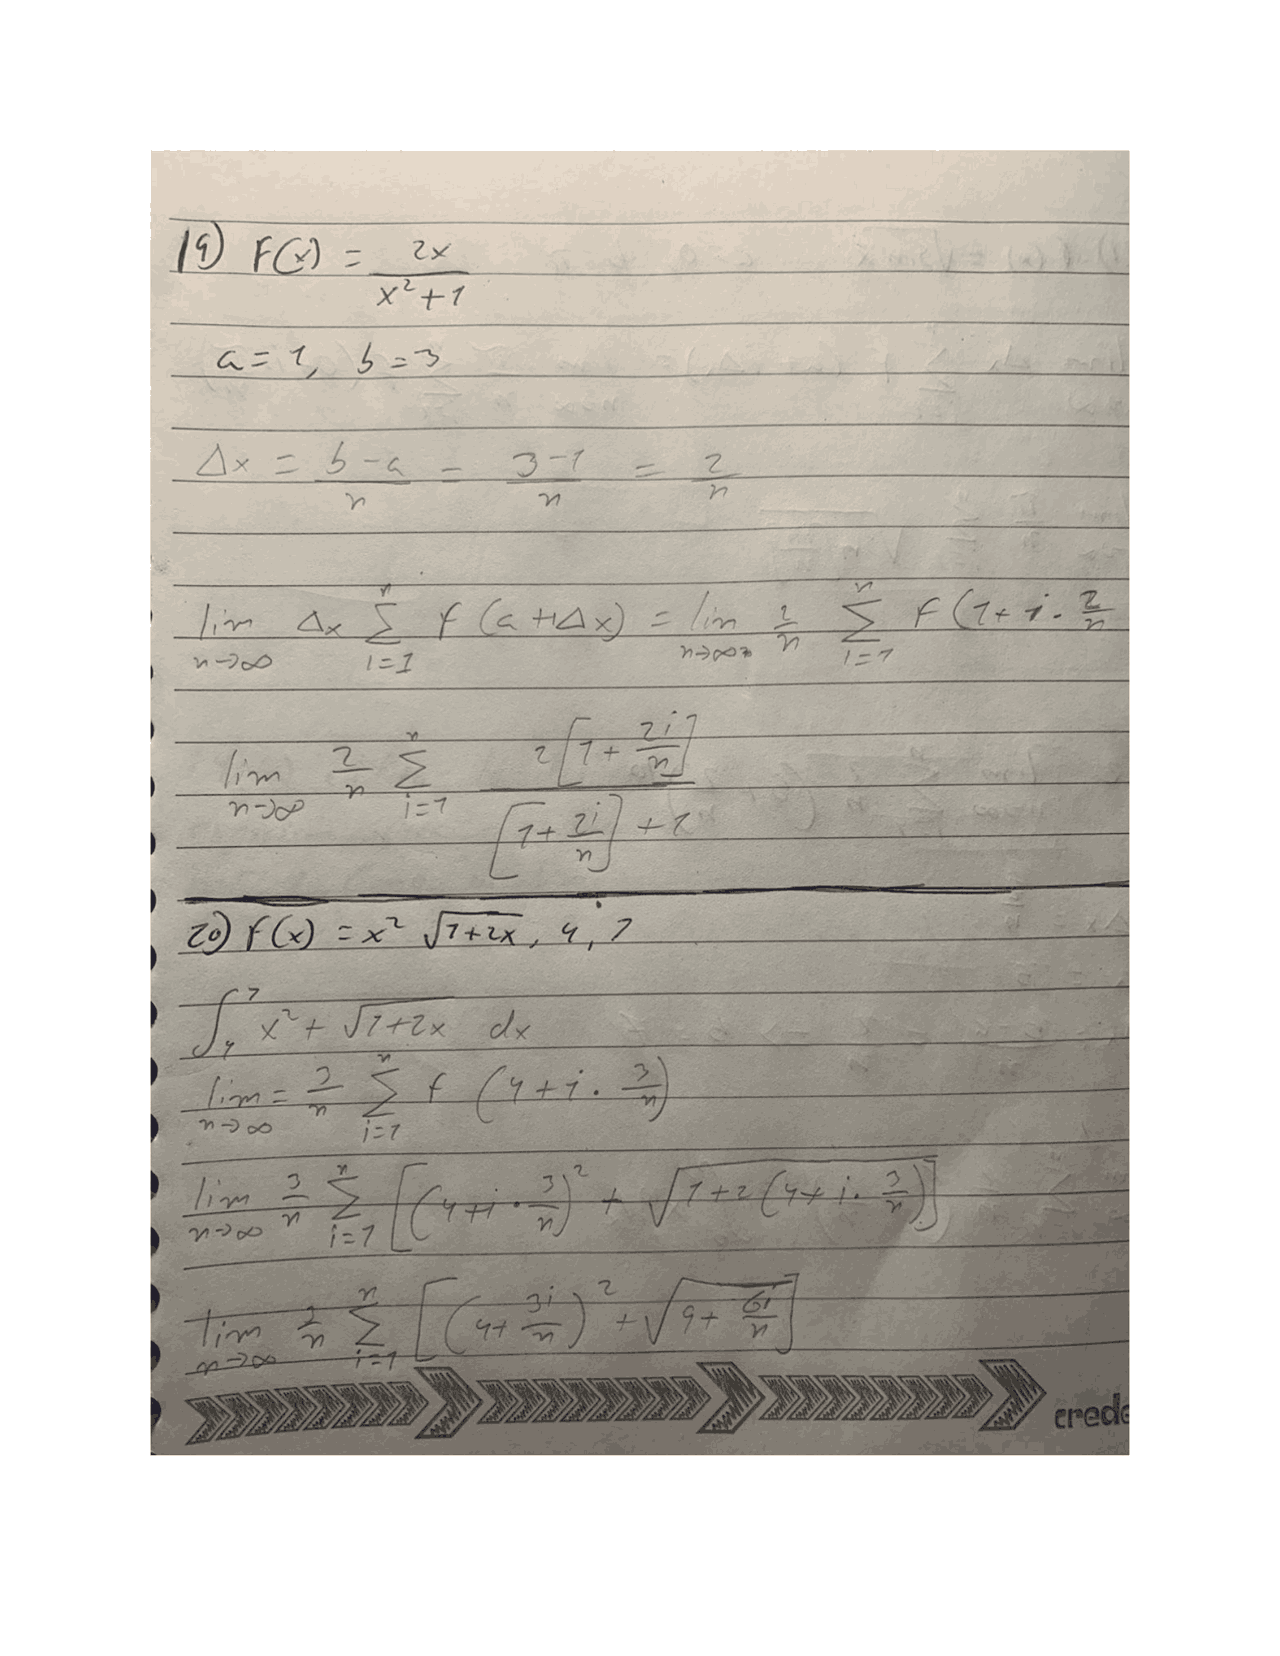 19) F(x) = 2x / x² + 1
a = 1, b = 3
Δx = b - a / n = 3 - 1 / n = 2 / n
lim n→∞ Δx Σ i=1 n f (a + iΔx) = lim n→∞ 2/n Σ i=1 n F (1 + i · 2/n
lim n→∞ 2/n Σ i=1 n 2[1 + 2i/n] / [1 + 2i/n] + 1
20) F(x) = x² √1+2x , 4, 7
∫ 4 7 x² + √1+2x dx
lim n→∞ = 3/n Σ i=1 n f (4 + i · 3/n)
lim n→∞ 3/n Σ i=1 n [(4 + i · 3/n)² + √1+2(4 + i · 3/n)]
lim n→∞ 3/n Σ i=1 n [(4 + 3i/n)² + √9 + 6i/n]
crede